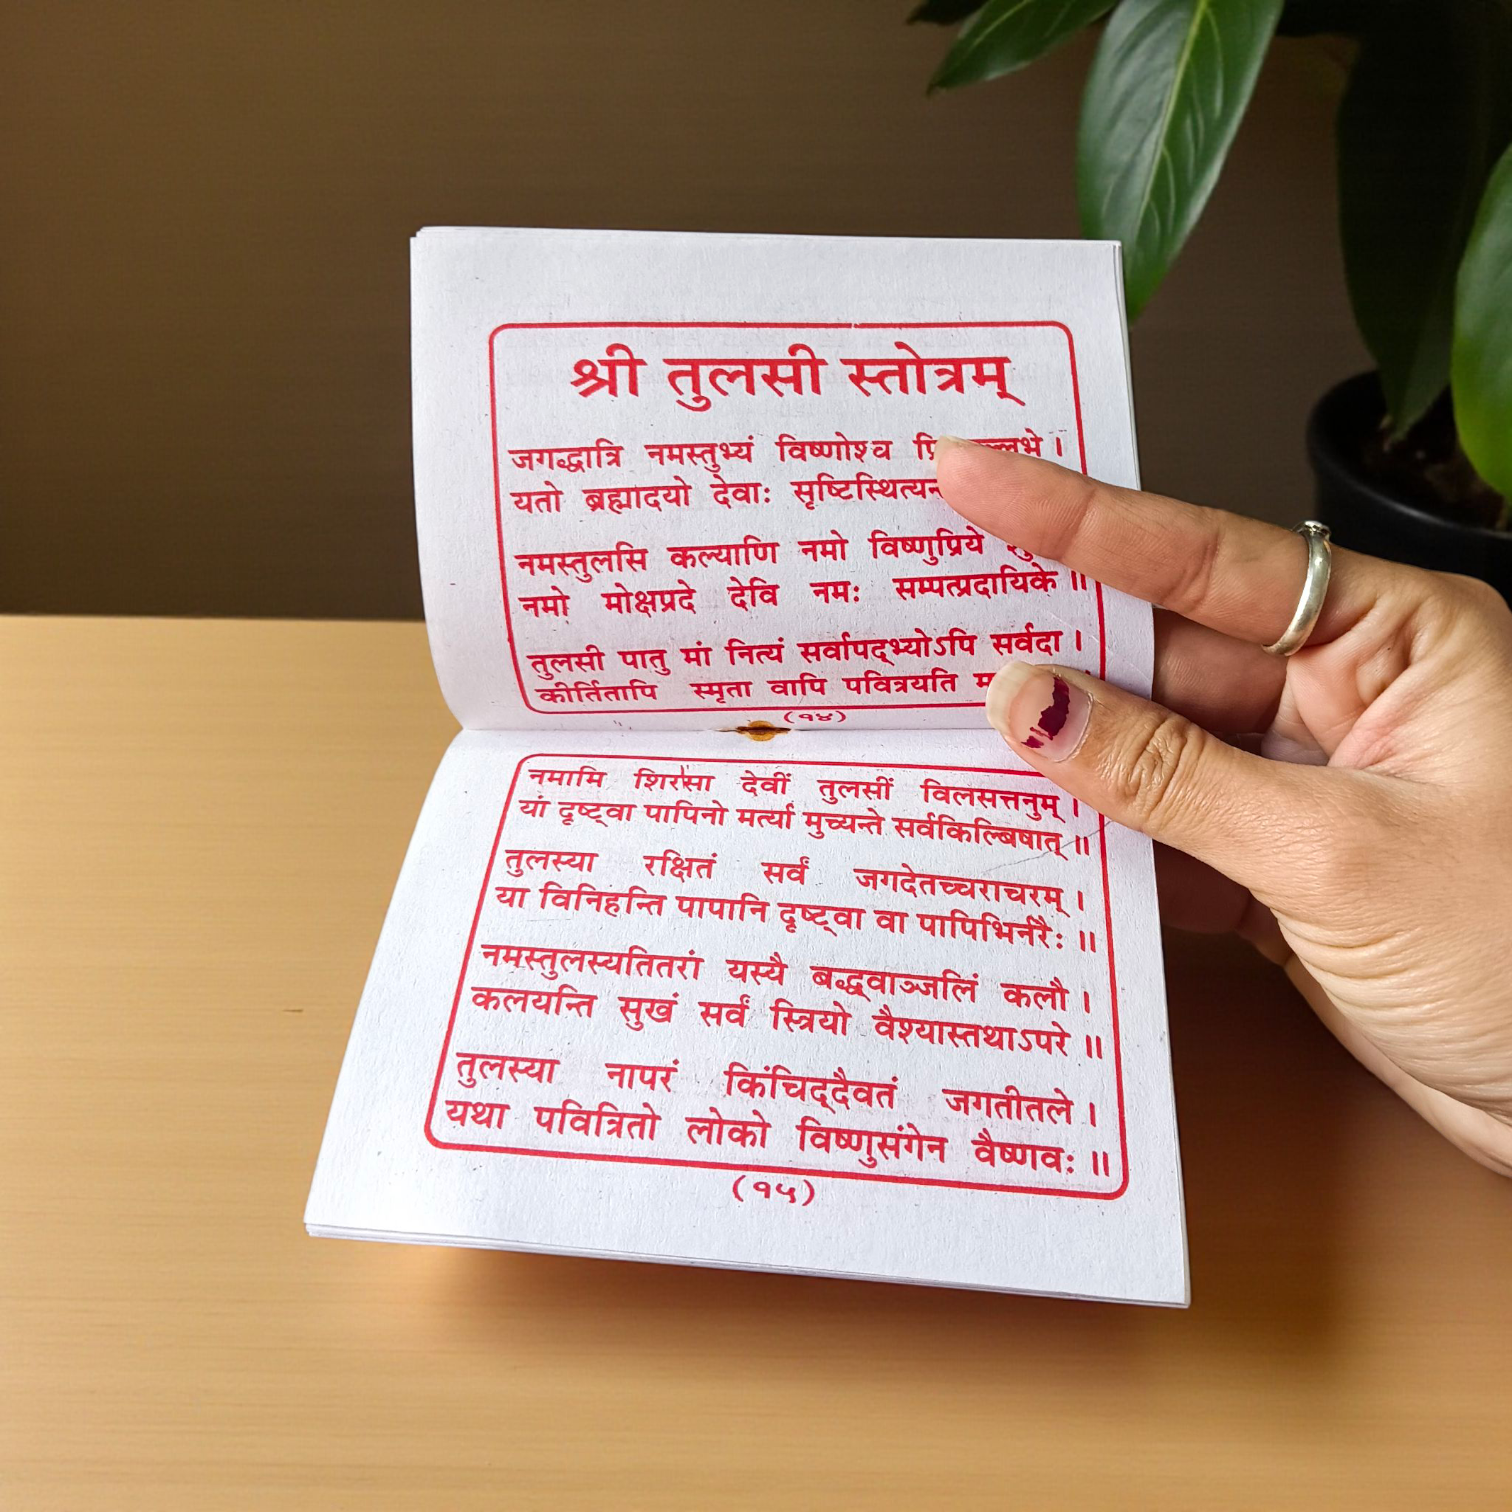 श्री तुलसी स्तोत्रम्
जगद्धात्रि नमस्तुभ्यं विष्णोश्च
यतो ब्रह्मादयो देवाः
नमस्तुलसि कल्याणि नमो विष्णुप्रिये
नमो मोक्षप्रदे देवि नमः सम्पत्प्रदायिके ॥
तुलसी पातु मां नित्यं सर्वापद्भ्योऽपि सर्वदा ।
कीर्तितापि स्मृता वापि पवित्रयति
(१४)
नमामि शिरसा देवीं तुलसीं विलसत्तनुम् ।
यां दृष्ट्वा पापिनो मर्त्या मुच्यन्ते सर्वकिल्बिषात् ॥
तुलस्या रक्षितं सर्वं जगदेतच्चराचरम् ।
या विनिहन्ति पापानि दृष्ट्वा वा पापिभिर्नरैः ॥
नमस्तुलस्यतितरां यस्यै बद्ध्वाञ्जलिं कलौ ।
कलयन्ति सुखं सर्वं स्त्रियो वैश्यास्तथाऽपरे ॥
तुलस्या नापरं किंचिद्दैवतं जगतीतले ।
यथा पवित्रितो लोको विष्णुसंगेन वैष्णवः ॥
(१५)